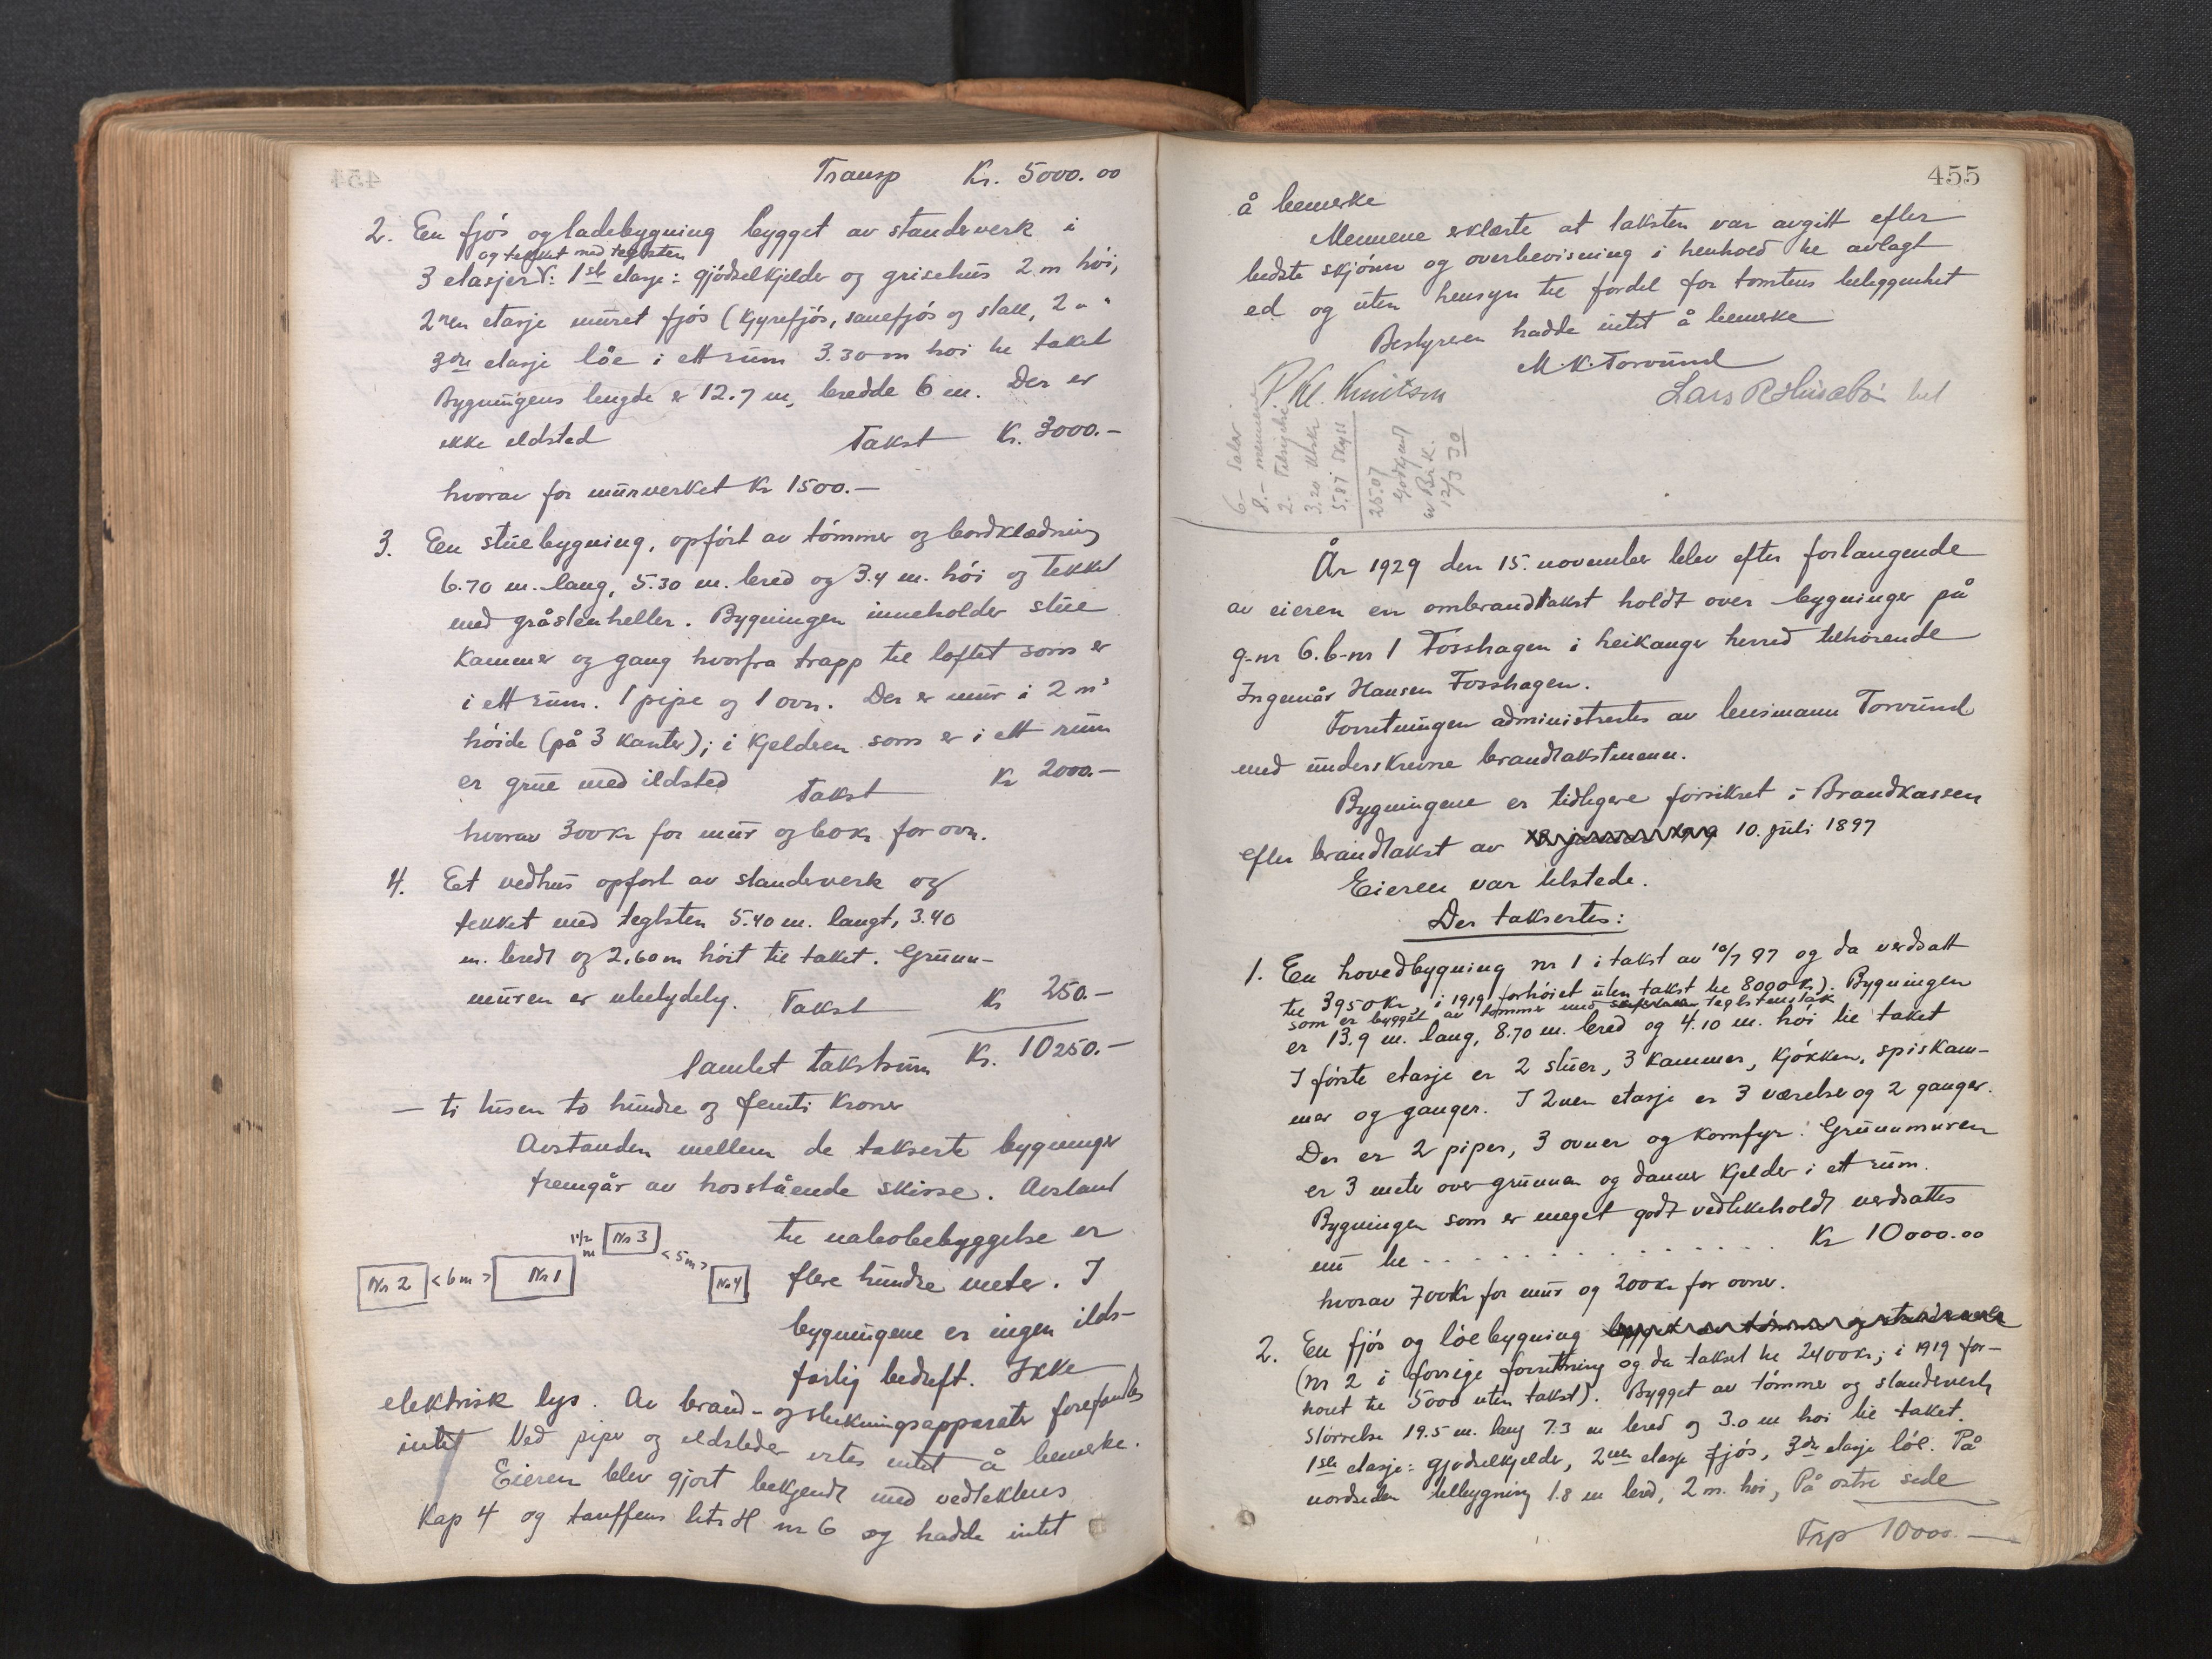 454
Transp Kr. 5000.00
2. En fjøs og ladebygning bygget av standerverk i
og tekket med teglsten
3 etasjer: 1ste etasje: gjødselkjelder og grisehus 2 m høi,
2nen etasje muret fjøs (kyrefjøs, sauefjøs og stall, 2 " "
3die etasje løe i ett rum 3.30 m høi te taket
Bygningens lengde er 12.7 m, bredde 6 m. Der er
ikke ildsted Takst Kr. 3000.-
hvorav for murverket Kr 1500.-
3. En stuebygning, opført av tømmer og bordklædning
6.70 m. lang, 5.30 m. bred og 3.4 m. høi og tekket
med gråstenheller. Bygningen inneholder stue
kammer og gang hvorfra trapp til loftet som er
i ett rum. 1 pipe og 1 ovn. Der er mur i 2 m's
høide (på 3 kanter); i kjelderen som er i ett rum
er grue med ildsted Takst Kr 2000.-
hvorav 300 kr for mur og 60 kr. for ovn.
4. Et vedhus opført av standerverk og
tekket med teglsten 5.40 m. langt, 3.40
m. bredt og 2.60 m høit til taket. Grunn-
muren er ubetydelig. Takst Kr 250.-
Samlet takstsum Kr. 10250.-
- ti tusen to hundre og femti Kroner
Avstanden mellem de takserte bygninger
fremgår av hosstående skisse. Avstand
til nabobebyggelse er
1 1/2 m Nr 3 < 5 m >
Nr 2 < 6 m > Nr 1 Nr 4
flere hundre meter. I
bygningene er ingen ilds-
farlig bedrift. Ikke
elektrisk lys. Av brand- og slukningsapparater forefandtes
intet Ved piper og ildsteder vites intet å bemerke.
Eieren blev gjort bekjendt med vedtektens
Kap 4 og tariffens litr H nr 6 og hadde intet
455
å bemerke
Mennene erklærte at taksten var avgitt efter
bedste skjønn og overbevisning i henhold te avlagt
ed og uten hensyn til fordel for tomtens beleggenhet
Bestyreren hadde intet å bemerke
M. K. Torvund
P. Kl. Knutson Lars R Husabø
6- Salær
8.- mennene
2.- Tilsigelse
3.20 Utskr
5.87 Skyss
25.07
Godkjent
av Br. K.
12/3 30
År 1929 den 15. november blev efter forlangende
av eieren en ombrandtakst holdt over bygninger på
g-nr 6. b-nr 1 Fosshagen i Leikanger herred tilhørende
Ingemår Hansen Fosshagen.
Forretningen administrertes av lensmann Torvund
med underskrevne brandtakstmenn.
Bygningene er tidligere forsikret i Brandkassen
efter brandtakst av 10. juli 1897
Eieren var tilstede.
Der taksertes:
1. En hovedbygning nr 1 i takst av 10/7 97 og da verdsatt
til 3950 kr, i 1919 forhøiet uten takst te 8000 kr). Bygningen
som er bygget av tømmer med teglstenstak
er 13.9 m. lang, 8.70 m. bred og 4.10 m. høi til taket
I første etasje er 2 stuer, 3 kammer, kjøkken, spiskam-
mer og ganger. I 2nen etasje er 3 værelser og 2 ganger.
Der er 2 piper, 3 ovner og komfyr. Grunnmuren
er 3 meter over grunnen og danner kjelder i ett rum.
Bygningen som er meget godt vedlikeholdt verdsattes
nu te . . . . . . . . . . . Kr 10000.00
hvorav 700 kr for mur og 200 kr for ovner.
2. En fjøs og løebygning
(nr 2 i forrige forretning og da takset te 2400 kr; i 1919 for-
høiet til 5000 uten takst). Bygget av tømmer og standerverk
Størrelse 19.5 m. lang 7.3 m bred og 3.0 m høi til taket.
1ste etasje: gjødselkjelder, 2nen etasje fjøs, 3die etasje løe. På
nordsiden tilbygning 1.8 m bred, 2 m. høi, På østre side
Trp 10000.-